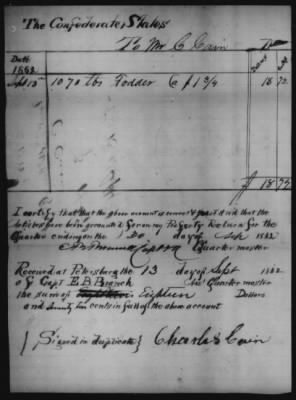 The Confederate States
To Mr C Cain Dr
Date
1862
Dollars cts
Sept 13 1070 lbs Fodder @ $1 3/4 18 72
$ 18 72
I certify that that the above account is correct & just & that the
articles have been accounted for on my Property Return for the
Quarter ending on the 30 day of Sep 1862
Quarter master
Received at Petersburg the 13 day of Sept 1862
of Capt E. B. Branch Quarter master
the sum of Eighteen Dollars
and Seventy two cents in full of the above account
{ Signed in duplicate } Charles Cain